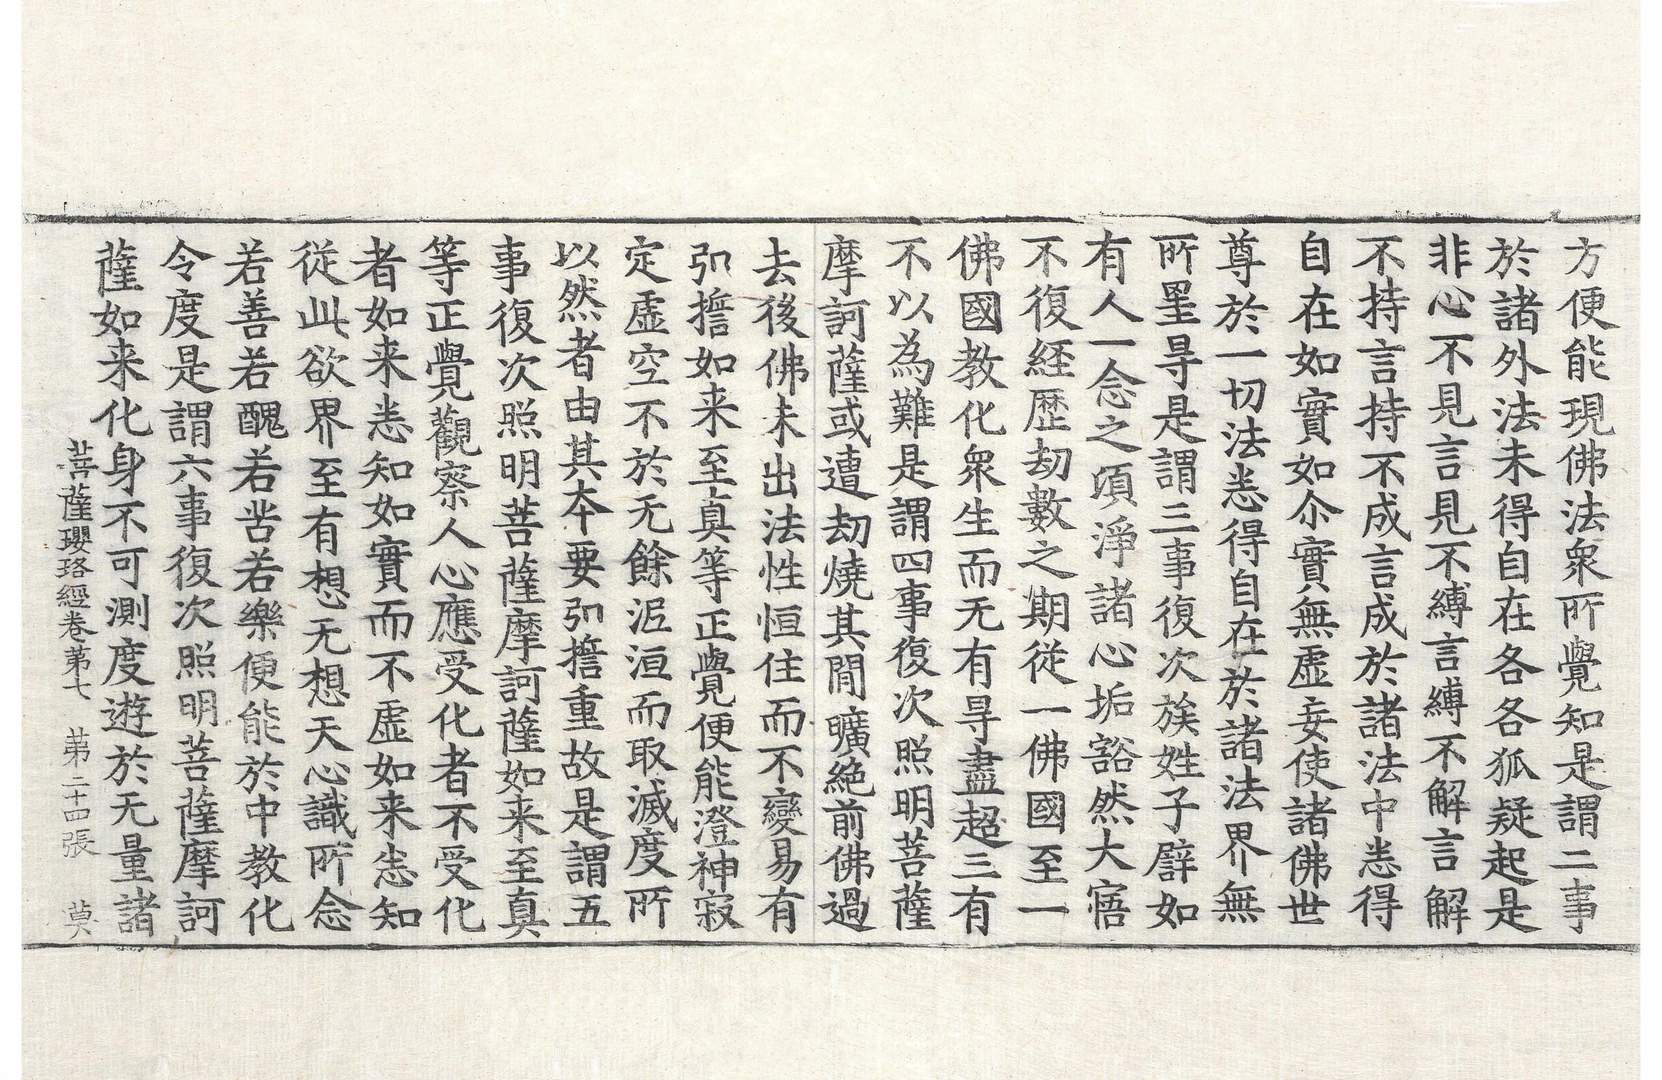 方便能現佛法衆所覺知是謂二事
於諸外法未得自在各各狐疑起是
非心不見言見不縛言縛不解言解
不持言持不成言成於諸法中悉得
自在如實如尒實無虛妄使諸佛世
尊於一切法悉得自在於諸法界無
所罣㝵是謂三事復次族姓子譬如
有人一念之頃淨諸心垢豁然大寤
不復経歴劫數之期從一佛國至一
佛國教化衆生而无有㝵盡超三有
不以為難是謂四事復次照明菩薩
摩訶薩或遭劫燒其間曠絶前佛過
去後佛未出法性恒住而不變易有
弘擔如来至真等正覺便能澄神寂
定虛空不於无餘泥洹而取滅度所
以然者由其夲要弘擔重故是謂五
事復次照明菩薩摩訶薩如来至真
等正覺觀察人心應受化者不受化
者如来悉知如實而不虛如来悉知
從此欲界至有想无想天心識所念
若善若醜若苦若樂便能於中教化
令度是謂六事復次照明菩薩摩訶
薩如来化身不可測度遊於无量諸
菩薩瓔珞經卷第七　第二十四張　莫